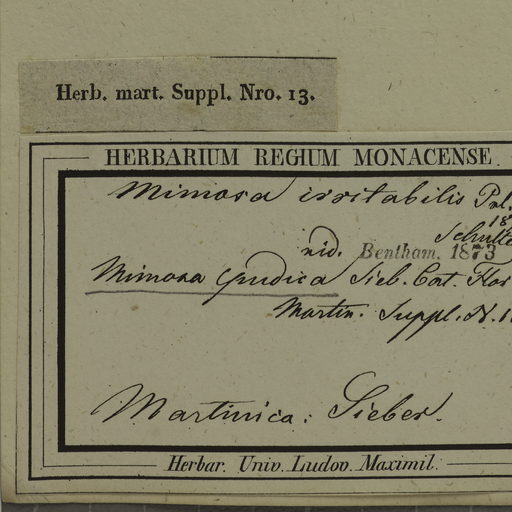 Herb. mart. Suppl. Nro. 13.
HERBARIUM REGIUM MONACENSE
Mimosa irritabilis
18
Schultes
vid. Bentham. 1873
Mimosa pudica Sieb. Cat. Hor
Martin. Suppl. N. 1
Martinica: Sieber.
Herbar. Univ. Ludov. Maximil.